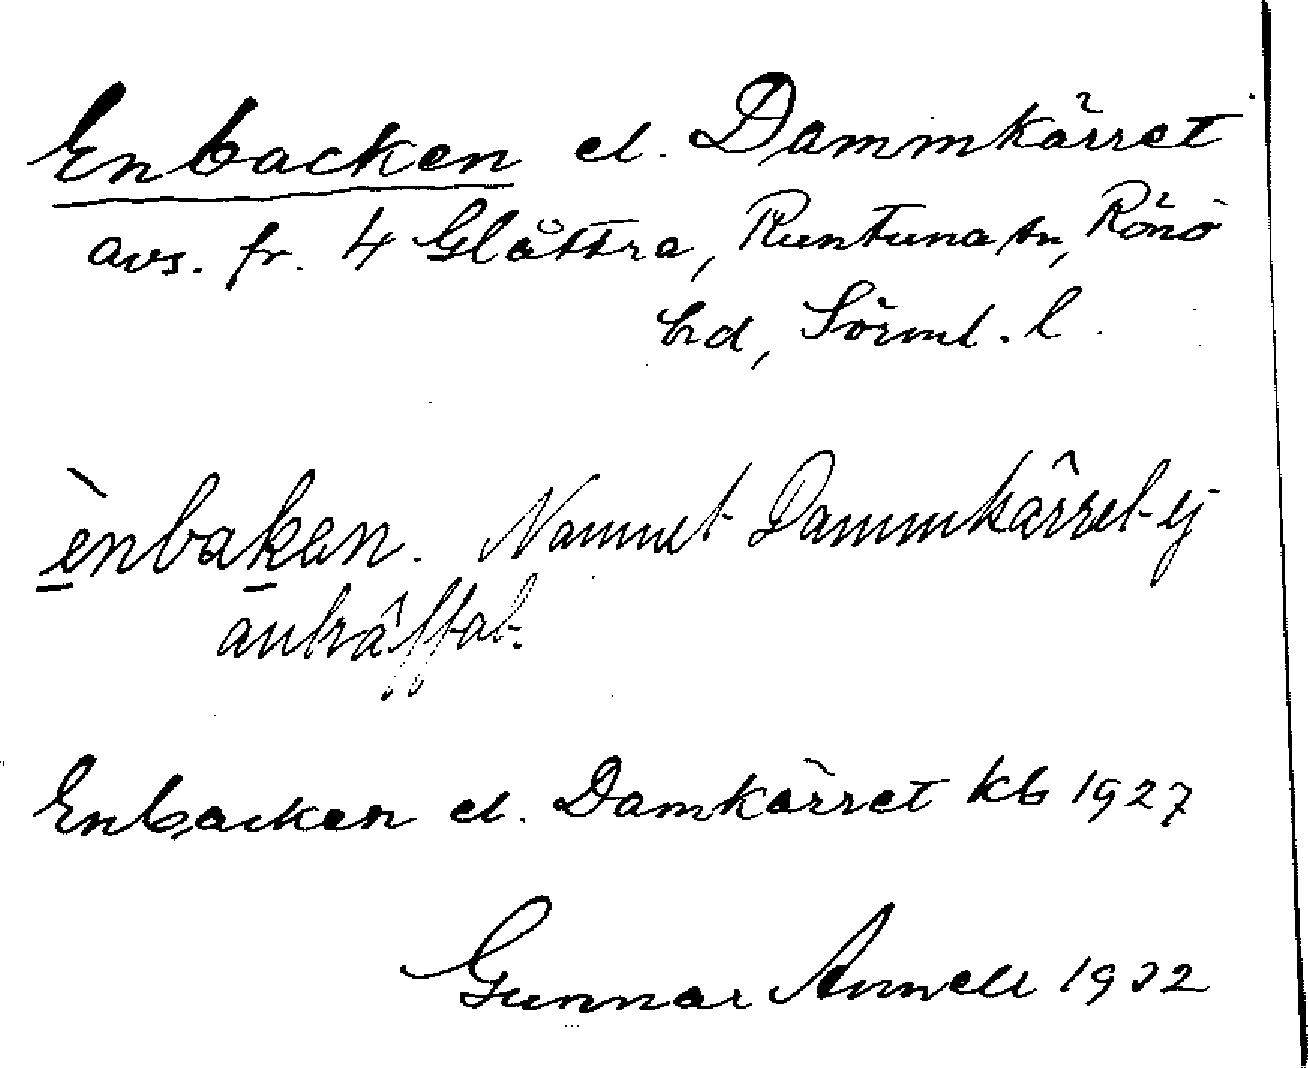 Enbacken el. Dammkärret
avs. fr. 4 Glåttra, Runtuna sn, Rönö
hd, Sörml. l.
ènbakan. Namnet Dammkärret ej
anträffat.
Enbacken el. Damkärret kb 1927
Gunnar Annell 1932